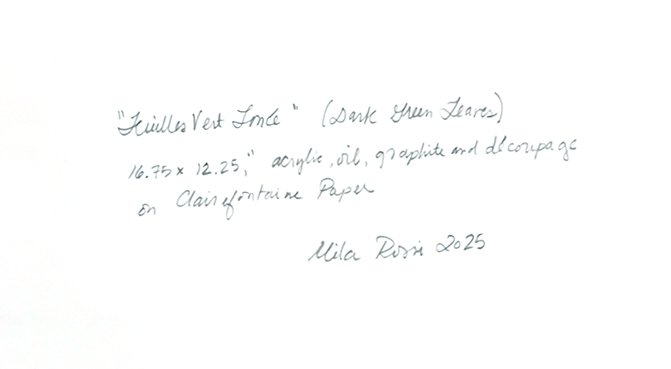 "Feuilles Vert Foncé" (Dark Green Leaves)
16.75 x 12.25," acrylic, oil, graphite and découpage
on Clairefontaine Paper
Mila Rossi 2025